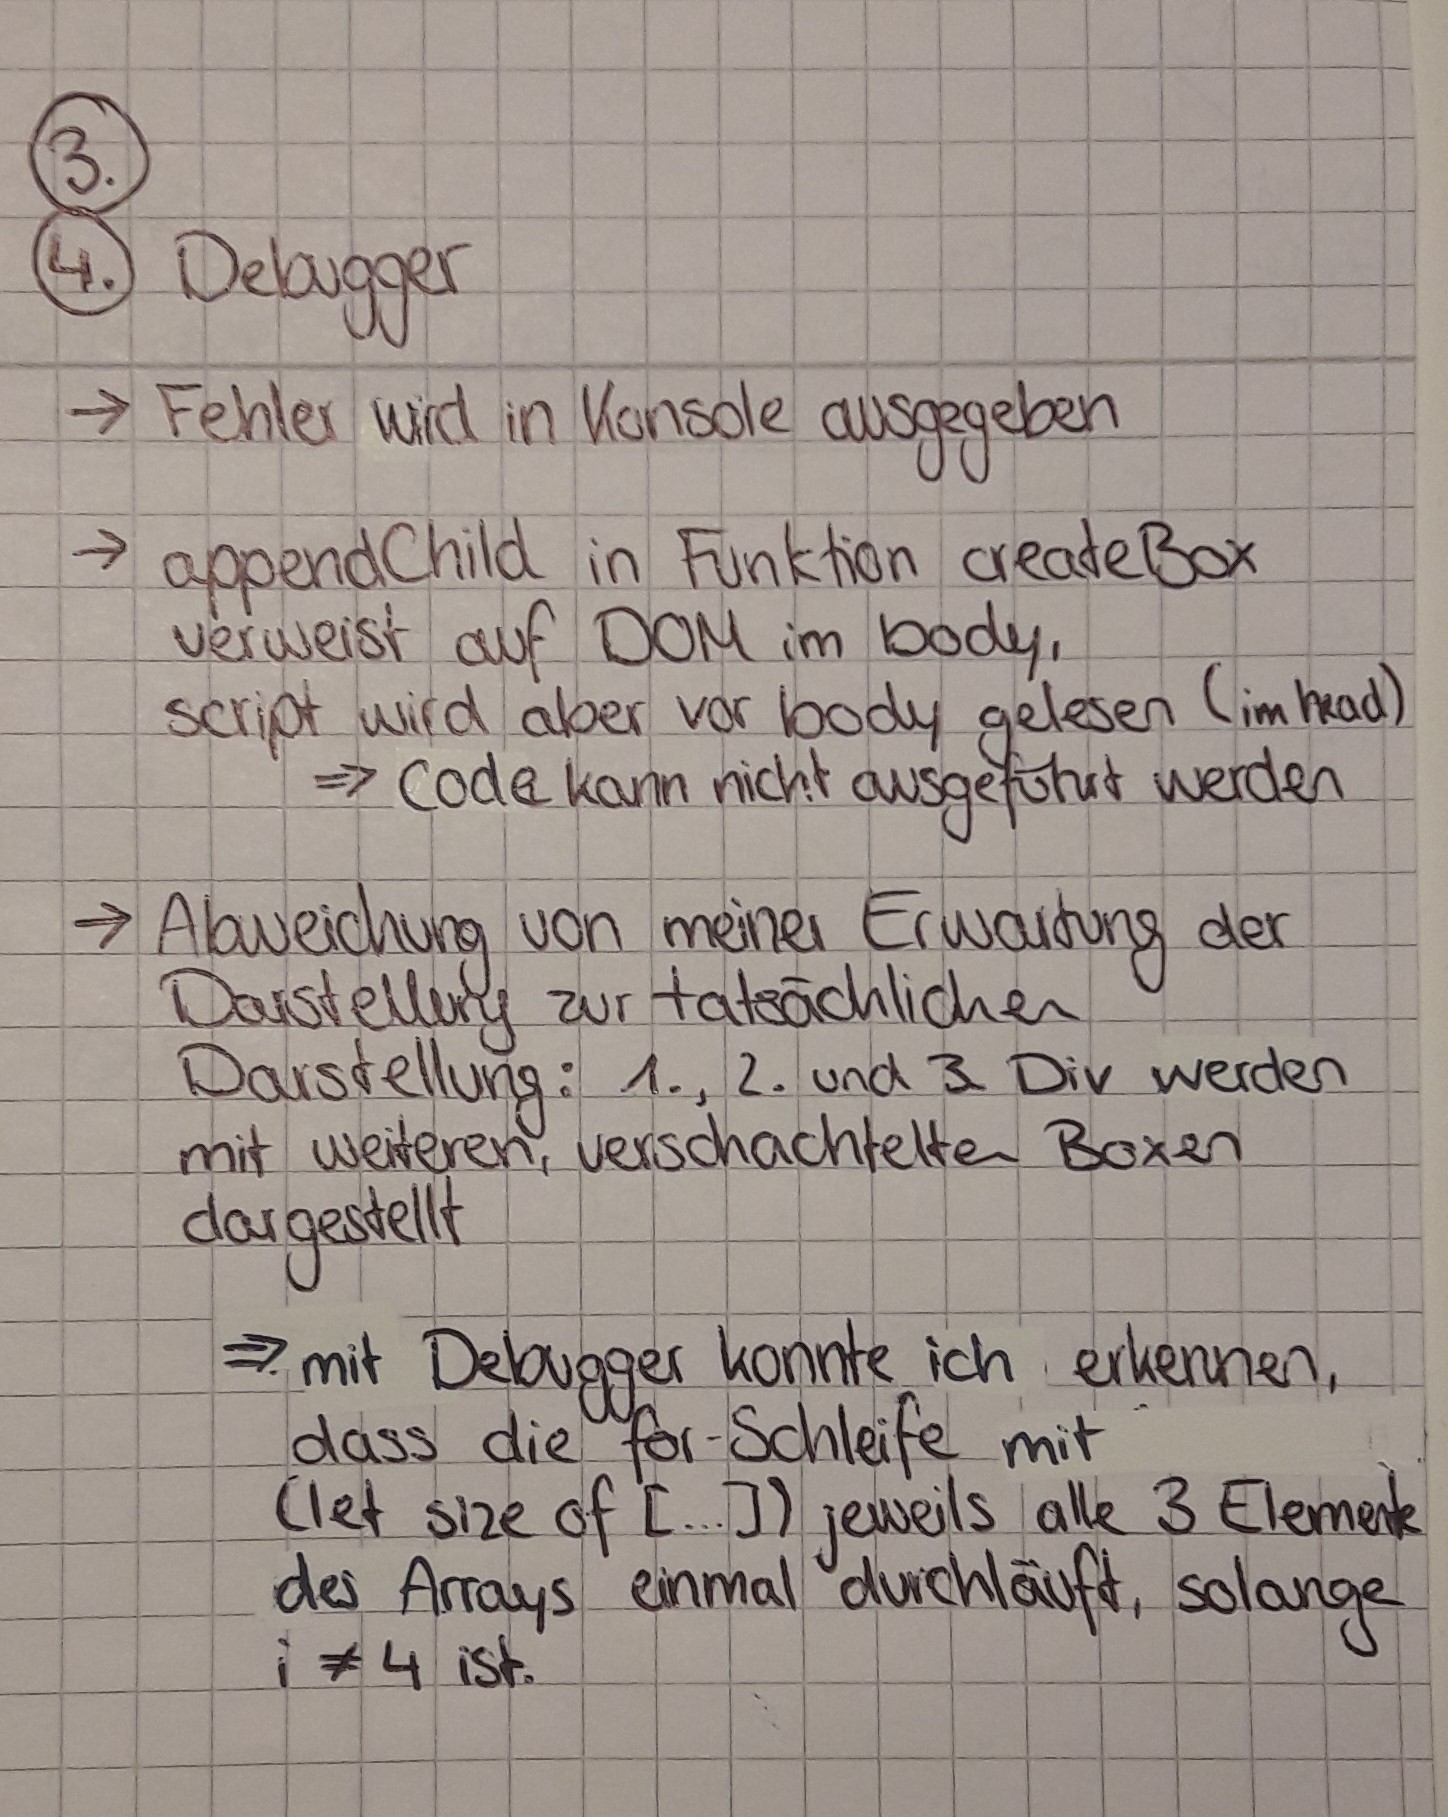 3.
4. Debugger
→ Fehler wird in Konsole ausgegeben
→ appendChild in Funktion createBox
verweist auf DOM im body,
script wird aber vor body gelesen (im head)
⇒ Code kann nicht ausgeführt werden
→ Abweichung von meiner Erwartung der
Darstellung zur tatsächlichen
Darstellung: 1., 2. und 3. Div werden
mit weiteren, verschachtelten Boxen
dargestellt
⇒ mit Debugger konnte ich erkennen,
dass die for-Schleife mit
(let size of [...]) jeweils alle 3 Elemente
des Arrays einmal durchläuft, solange
i ≠ 4 ist.